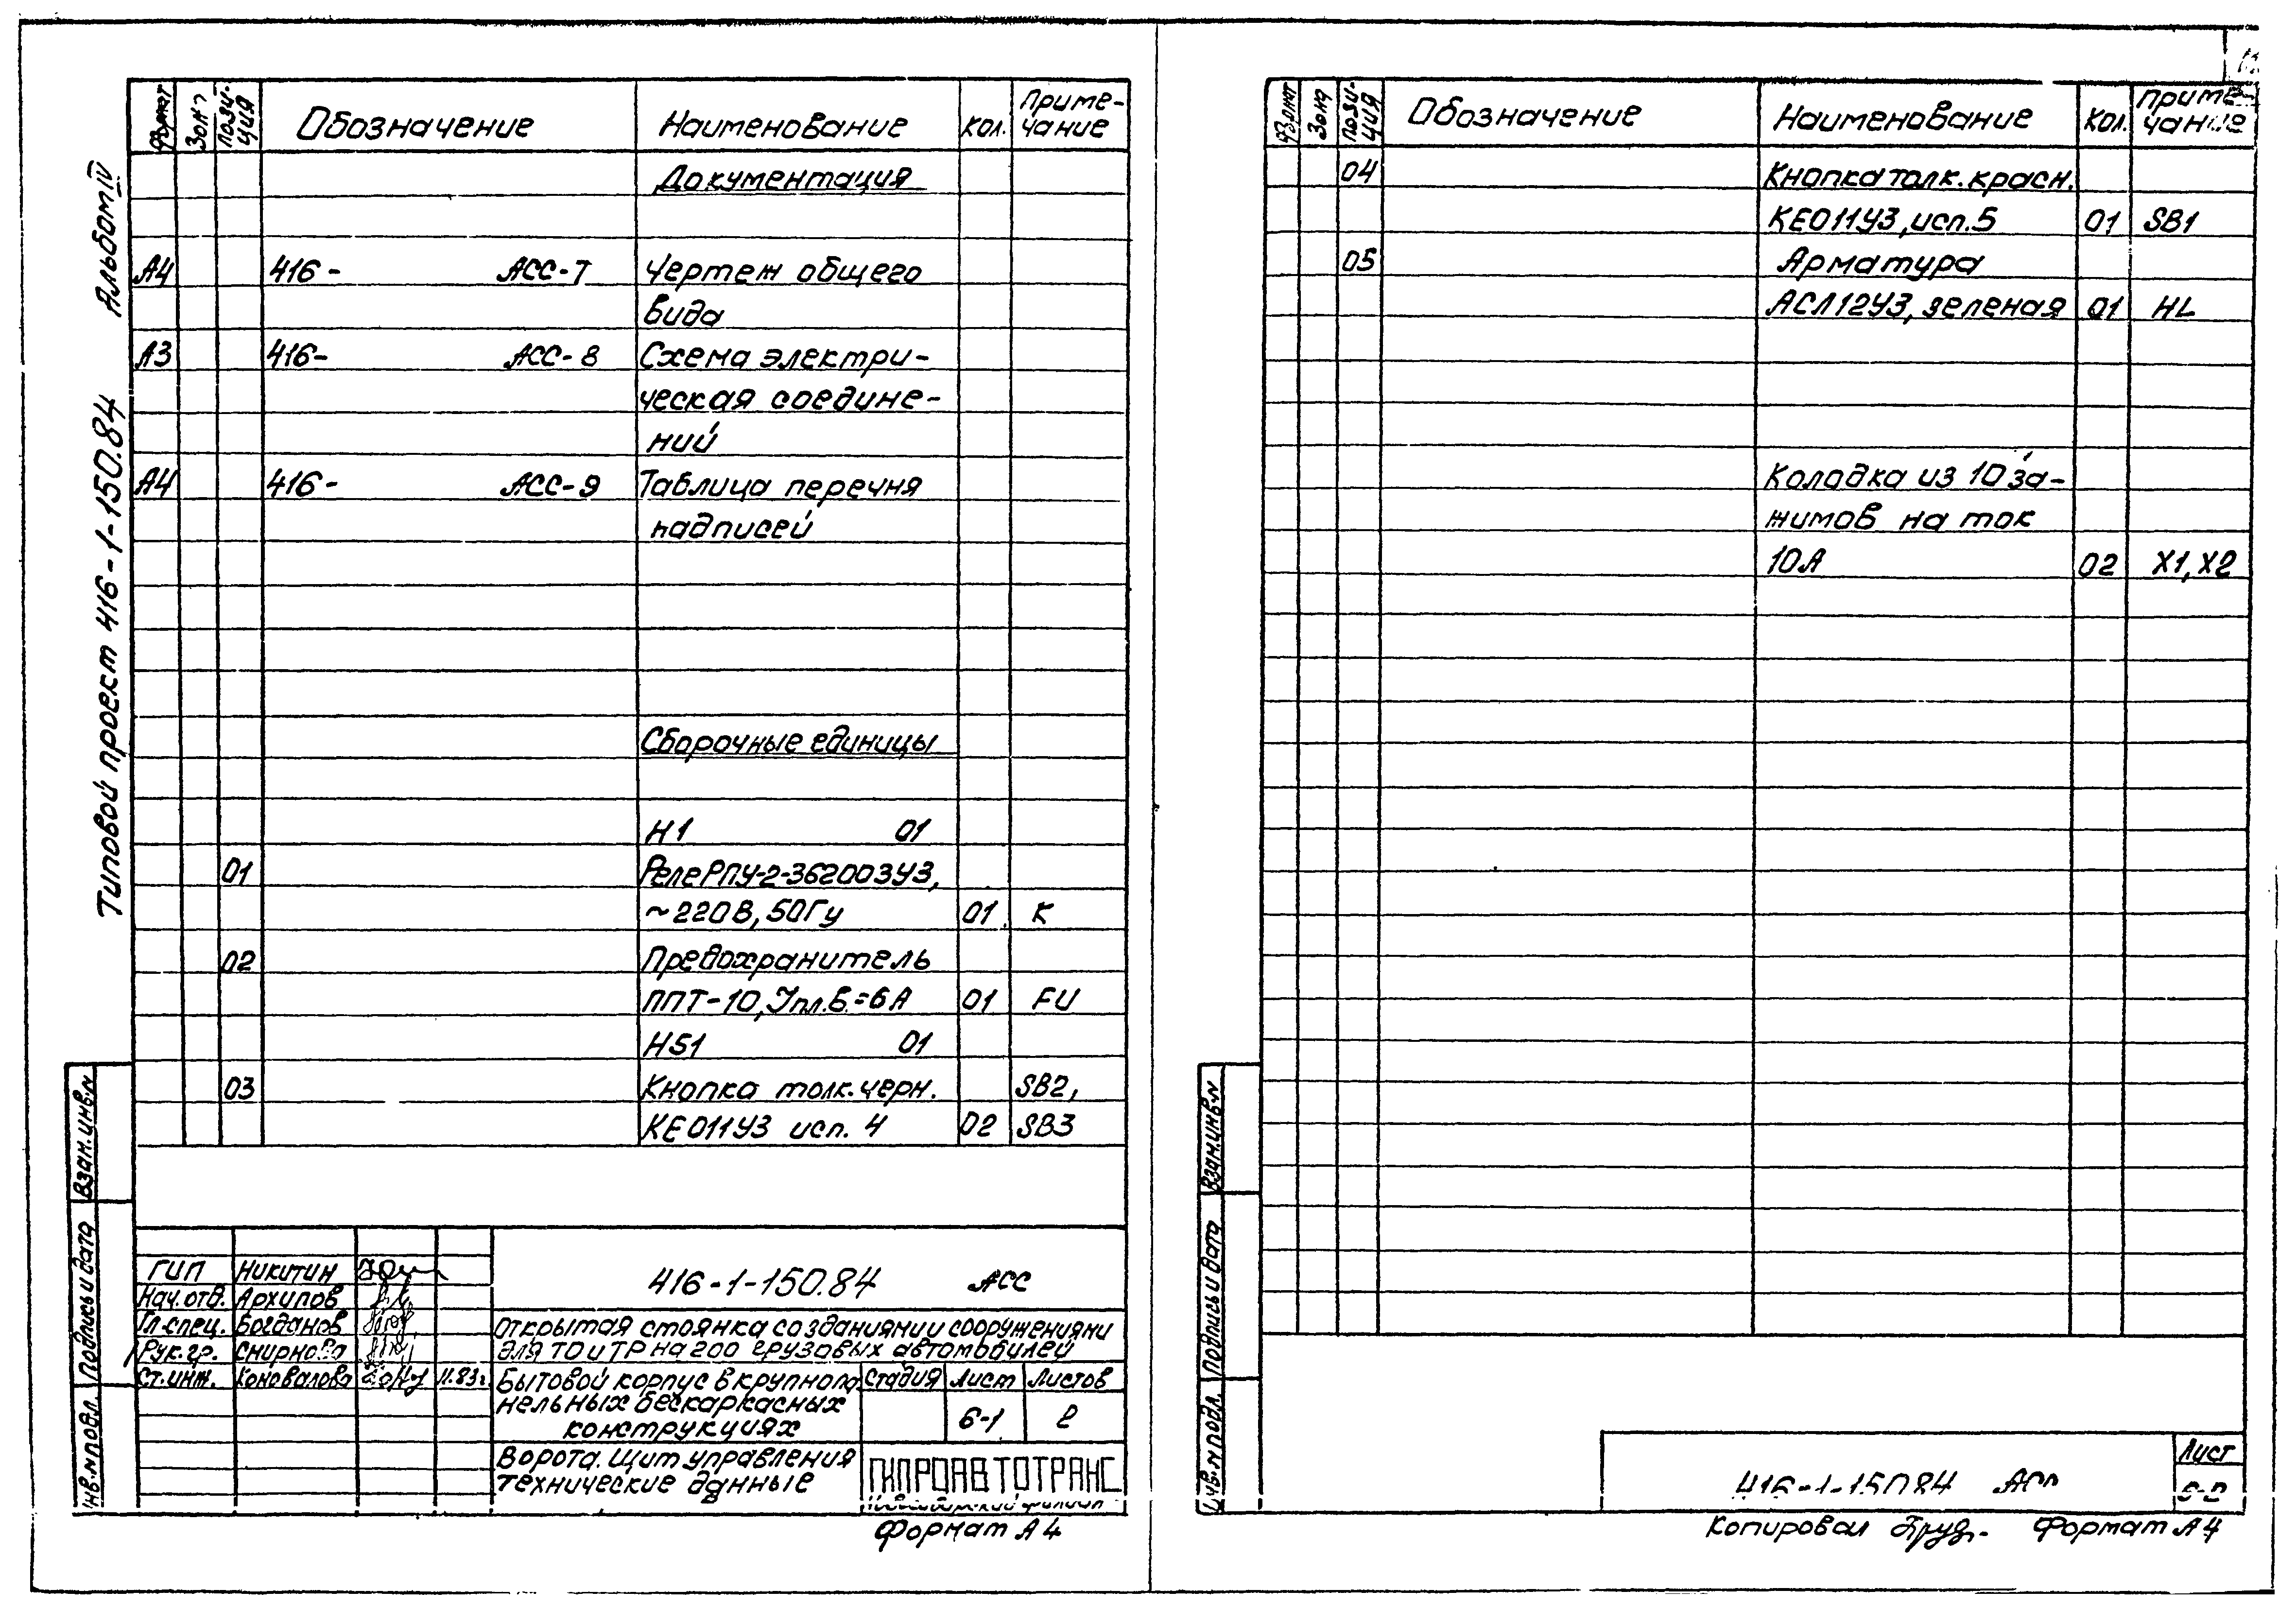 Альбом IV
Типовой проект 416-1-150.84
Формат Зона Пози-ция Обозначение Наименование Кол. Приме-чание
Документация
А4 416- АСС-7 Чертеж общего
вида
А3 416- АСС-8 Схема электри-
ческая соедине-
ний
А4 416- АСС-9 Таблица перечня
надписей
Сборочные единицы
Н1 01
01 Реле РПУ-2-362003У3,
~220В, 50Гц 01 К
02 Предохранитель
ППТ-10, Jпл.в.=6А 01 FU
HS1 01
03 Кнопка толк. черн. SB2,
КЕ011У3 исп. 4 02 SB3
Взам. инв. N
Подпись и дата
Инв. N подл.
ГИП Никитин
Нач. отд. Архипов
Гл. спец. Богданов
Рук. гр. Смирнова
Ст. инж. Коновалова 11.83г.
416-1-150.84 АСС
Открытая стоянка со зданиями и сооружениями
для ТО и ТР на 200 грузовых автомобилей
Бытовой корпус в крупнопа-
нельных бескаркасных
конструкциях
Стадия Лист Листов
6-1 2
Ворота. Щит управления
технические данные
ГИПРОАВТОТРАНС
Новосибирский филиал
Формат А4
Формат Зона Пози-ция Обозначение Наименование Кол. Приме-чание
04 Кнопка толк. красн.
КЕ011У3, исп. 5 01 SB1
05 Арматура
АСЛ12У3, зеленая 01 HL
Колодка из 10 за-
жимов на ток
10А 02 Х1, Х2
Взам. инв. N
Подпись и дата
Инв. N подл.
416-1-150.84 АСС
Лист
6-2
Копировал Формат А4